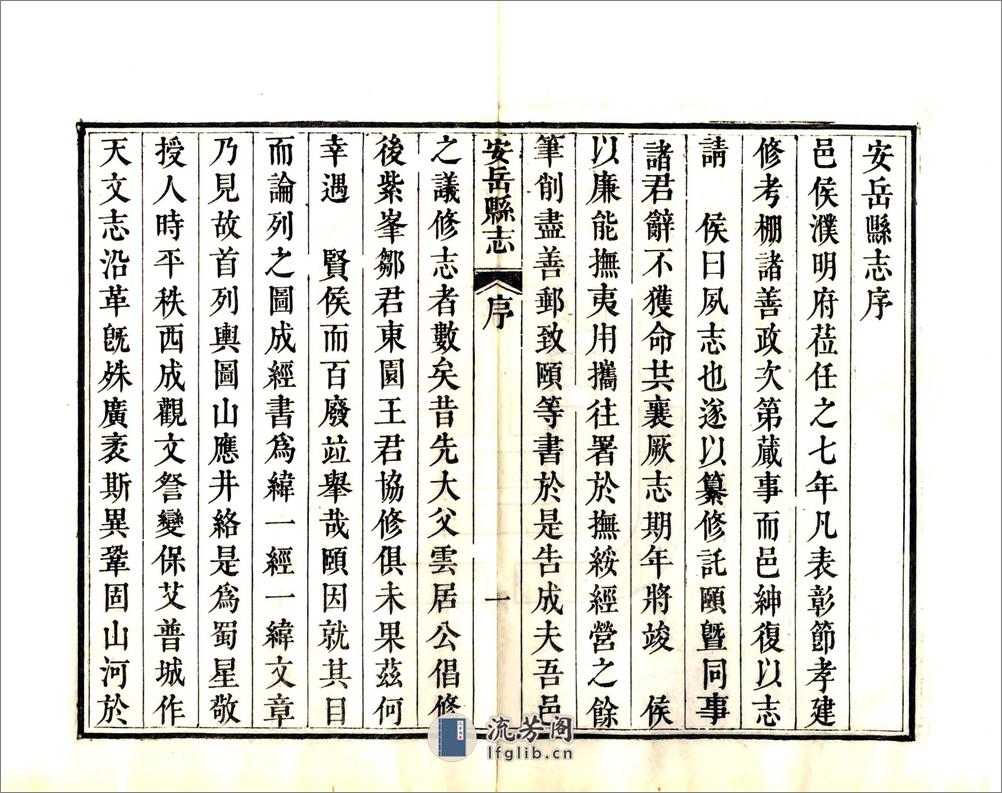 安岳縣志序
邑侯濮明府莅任之七年凡表彰節孝建
修考棚諸善政次第蕆事而邑紳復以志
請　侯曰夙志也遂以纂修託頤曁同事
諸君辭不獲命共襄厥志期年將竣　侯
以廉能撫夷用攜往署於撫綏經營之餘
筆削盡善郵致頤等書於是告成夫吾邑
安岳縣志　序　一
之議修志者數矣昔先大父雲居公倡修
後紫峯鄒君東園王君協修俱未果茲何
幸遇　賢侯而百廢竝舉哉頤因就其目
而論列之圖成經書爲緯一經一緯文章
乃見故首列輿圖山應井絡是爲蜀星敬
授人時平秩西成觀文詧變保艾普城作
天文志沿革旣殊廣袤斯異鞏固山河於
流芳阁
lfglib.cn